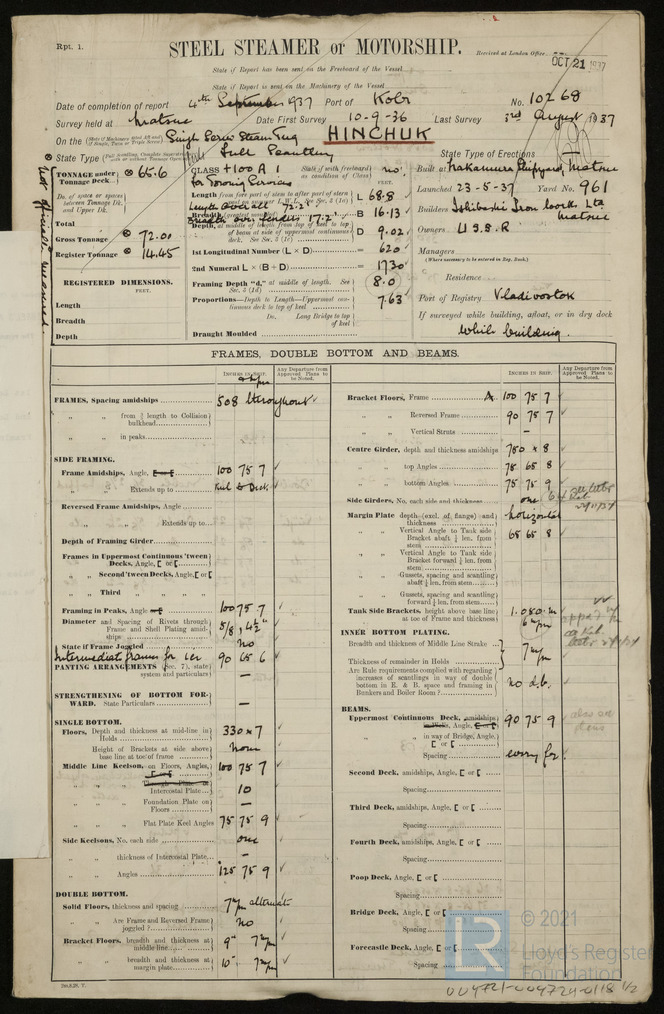 Rpt. 1.
STEEL STEAMER or MOTORSHIP.
Received at London Office
OCT 21 1937
State if Report has been sent on the Freeboard of the Vessel
State if Report is sent on the Machinery of the Vessel
Date of completion of report 4th September 1937 Port of Kobe No. 10268
Survey held at Matsue Date First Survey 10-9-36 Last Survey 3rd August 1937
On the Single Screw Steam Tug HINCHUK
State Type Full Scantling State Type of Erections
TONNAGE under Tonnage Deck 65.6
CLASS +100 A 1 for Towing Services State if with freeboard as condition of Class no.
Built at Nakamura Shipyard, Matsue
Launched 23-5-37 Yard No. 961
Builders Ishibashi Iron Works Ltd Matsue
Owners U.S.S.R
Managers
(Where necessary to be entered in Reg. Book.)
Residence
Port of Registry Vladivostok
If surveyed while building, afloat, or in dry dock
While building.
Total
Gross Tonnage 72.00
Register Tonnage 14.45
REGISTERED DIMENSIONS.
FEET.
Length
Breadth
Depth
Length overall 72.2'
L 68.8
B 16.13
D 9.02
1st Longitudinal Number (L × D) = 620
2nd Numeral L × (B + D) = 1730
Framing Depth "d," at middle of length. See Sec. 3 (1d) 8.0
Proportions—Depth to Length—Uppermost continuous deck to top of keel 7.63
Do. Long Bridge to top of keel
Draught Moulded
FRAMES, DOUBLE BOTTOM AND BEAMS.
INCHES IN SHIP.
Any Departure from Approved Plans to be Noted.
FRAMES, Spacing amidships 508 throughout
„ „ from ⅗ length to Collision bulkhead
„ „ in peaks
SIDE FRAMING.
Frame Amidships, Angle 100 75 7
„ „ Extends up to Keel to Deck
Reversed Frame Amidships, Angle
„ „ Extends up to
Depth of Framing Girder
Frames in Uppermost Continuous 'tween Decks, Angle, [ or [
„ Second 'tween Decks, Angle, [ or [
„ Third „ „
Framing in Peaks, Angle 100 75 7
Diameter and Spacing of Rivets through Frame and Shell Plating amidships 5/8, 4½"
State if Frame Joggled No
Intermediate frames for ice
PANTING ARRANGEMENTS (Sec. 7), state system and particulars 90 65 6
STRENGTHENING OF BOTTOM FORWARD. State Particulars —
SINGLE BOTTOM.
Floors, Depth and thickness at mid-line in Holds 330 × 7
Height of Brackets at side above base line at toe of frame None
Middle Line Keelson, on Floors, Angles, 100 75 7
„ „ Intercostal Plate 10
„ „ Foundation Plate on Floors —
„ „ Flat Plate Keel Angles 75 75 9
Side Keelsons, No. each side one
„ „ thickness of Intercostal Plate —
„ „ Angles 125 75 9
DOUBLE BOTTOM.
Solid Floors, thickness and spacing 7 m/m alternate
„ „ Are Frame and Reversed Frame joggled? No
Bracket Floors, breadth and thickness at middle line 9" 7 m/m
„ „ breadth and thickness at margin plate 10" 7 m/m
INCHES IN SHIP.
Any Departure from Approved Plans to be Noted.
Bracket Floors, Frame 100 75 7
„ „ Reversed Frame 90 75 7
„ „ Vertical Struts —
Centre Girder, depth and thickness amidships 750 × 8
„ „ top Angles 75 65 8
„ „ bottom Angles 75 75 9
Side Girders, No. each side and thickness one
Margin Plate depth (excl. of flange) and thickness horizontal
„ „ Vertical Angle to Tank side Bracket abaft ¼ len. from stem 65 65 8
„ „ Vertical Angle to Tank side Bracket forward ¼ len. from stem
„ „ Gussets, spacing and scantling abaft ¼ len. from stem
„ „ Gussets, spacing and scantling forward ¼ len. from stem
Tank Side Brackets, height above base line at toe of Frame and thickness 1.080 m 6 m/m
INNER BOTTOM PLATING.
Breadth and thickness of Middle Line Strake
Thickness of remainder in Holds 7 m/m
Are Rule requirements complied with regarding increases of scantlings in way of double bottom in E. & B. space and framing in Bunkers and Boiler Room? no d.b.
BEAMS.
Uppermost Continuous Deck, amidships 90 75 9
„ „ in way of Bridge, Angle, [ or [
Spacing every fr.
Second Deck, amidships, Angle, [ or [
Spacing
Third Deck, amidships, Angle, [ or [
Spacing
Fourth Deck, amidships, Angle, [ or [
Spacing
Poop Deck, Angle, [ or [
Spacing
Bridge Deck, Angle, [ or [
Spacing
Forecastle Deck, Angle, [ or [
Spacing
© 2021
Lloyd's Register
Foundation
LR
004721-004724-0118 1/2